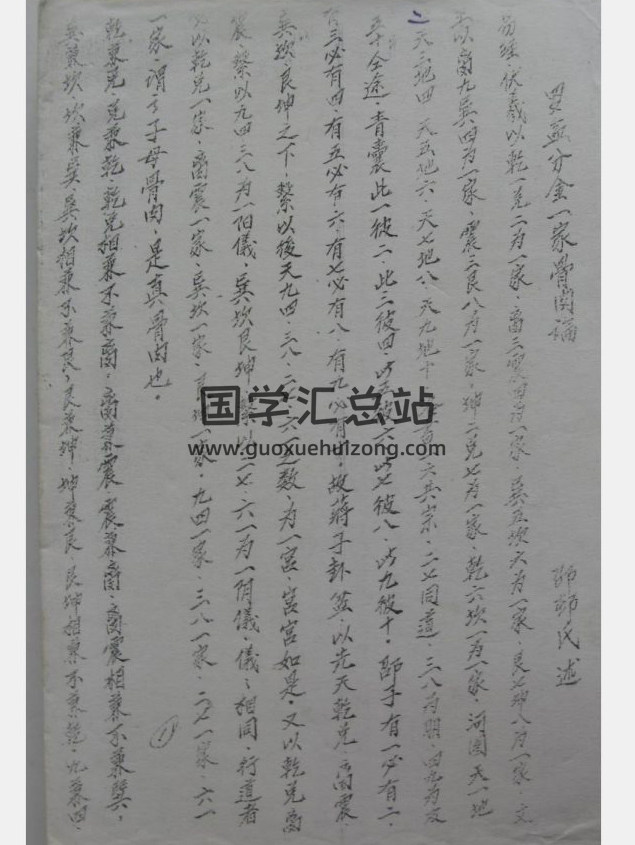 分金一家骨肉論
師師氏述
易経．伏羲以乾一兌二為一家．离三震四為一家．巽五坎六為一家．艮七坤八為一家．文
王以离九巽四為一家．震三艮八為一家．坤二兌七為一家．乾六坎一為一家．河圖天一地
二天三地四．天五地六．天七地八．天九地十．一六共宗．二七同道．三八為朋．四九為友
五十全途．青囊此一彼二．此三彼四．此五彼六．此七彼八．此九彼十．即子有一必有二．
有三必有四．有五必有六．有七必有八．有九必有十．故蔣子卦盆．以先天乾兌离震．
巽坎艮坤之下．繫以後天九四．三八．二七．六一之数．為一宮．宮宮如是．又以乾兌离
震．繫以九四三八為一陽儀．巽坎艮坤繫以二七．六一為一阴儀．儀々相同．行道者
以乾兌一家．离震一家．巽坎一家．艮坤一家．九四一家．三八一家．二七一家．六一
一家．謂之子母骨肉．是真骨肉也．
乾兼兌．兌兼乾．乾兌相兼不兼离．离兼震．震兼离．离震相兼不兼巽，
巽兼坎．坎兼巽．巽坎相兼不兼艮．艮兼坤．坤兼艮．艮坤相兼不兼乾．九兼四．
①
国学汇总站
www.guoxuehuizong.com